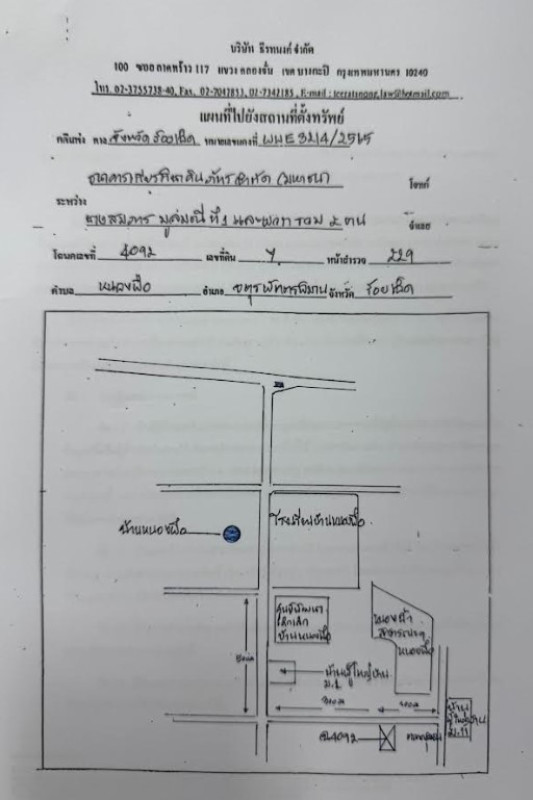 บริษัท ธีรทนงค์ จำกัด
100 ซอยลาดพร้าว 117 แขวงคลองจั่น เขตบางกะปิ กรุงเทพมหานคร 10240
โทร. 02-3755738-40, Fax. 02-7042813, 02-7342185, E-mail : teeratanong_law@hotmail.com
แผนที่ไปยังสถานที่ตั้งทรัพย์
คดีแพ่ง ศาล จังหวัดร้อยเอ็ด หมายเลขแดงที่ ผบE3214/2565
ธนาคารเกียรตินาคินภัทร จำกัด (มหาชน) โจทก์
ระหว่าง
ที่ 1 กับพวกรวม 2 คน จำเลย
โฉนดเลขที่ 4092 เลขที่ดิน 7 หน้าสำรวจ 229
ตำบล หนองผือ อำเภอ จตุรพักตรพิมาน จังหวัด ร้อยเอ็ด
บ้านหนองผือ
โรงเรียนบ้านหนองผือ
ศูนย์พัฒนา
เด็กเล็ก
บ้านหนองผือ
หนองน้ำ
สาธารณะ
หนองผือ
บ้านผู้ใหญ่บ้าน
ม.1
บ้าน
ผู้ใหญ่บ้าน
ม.11
ฉ.4092